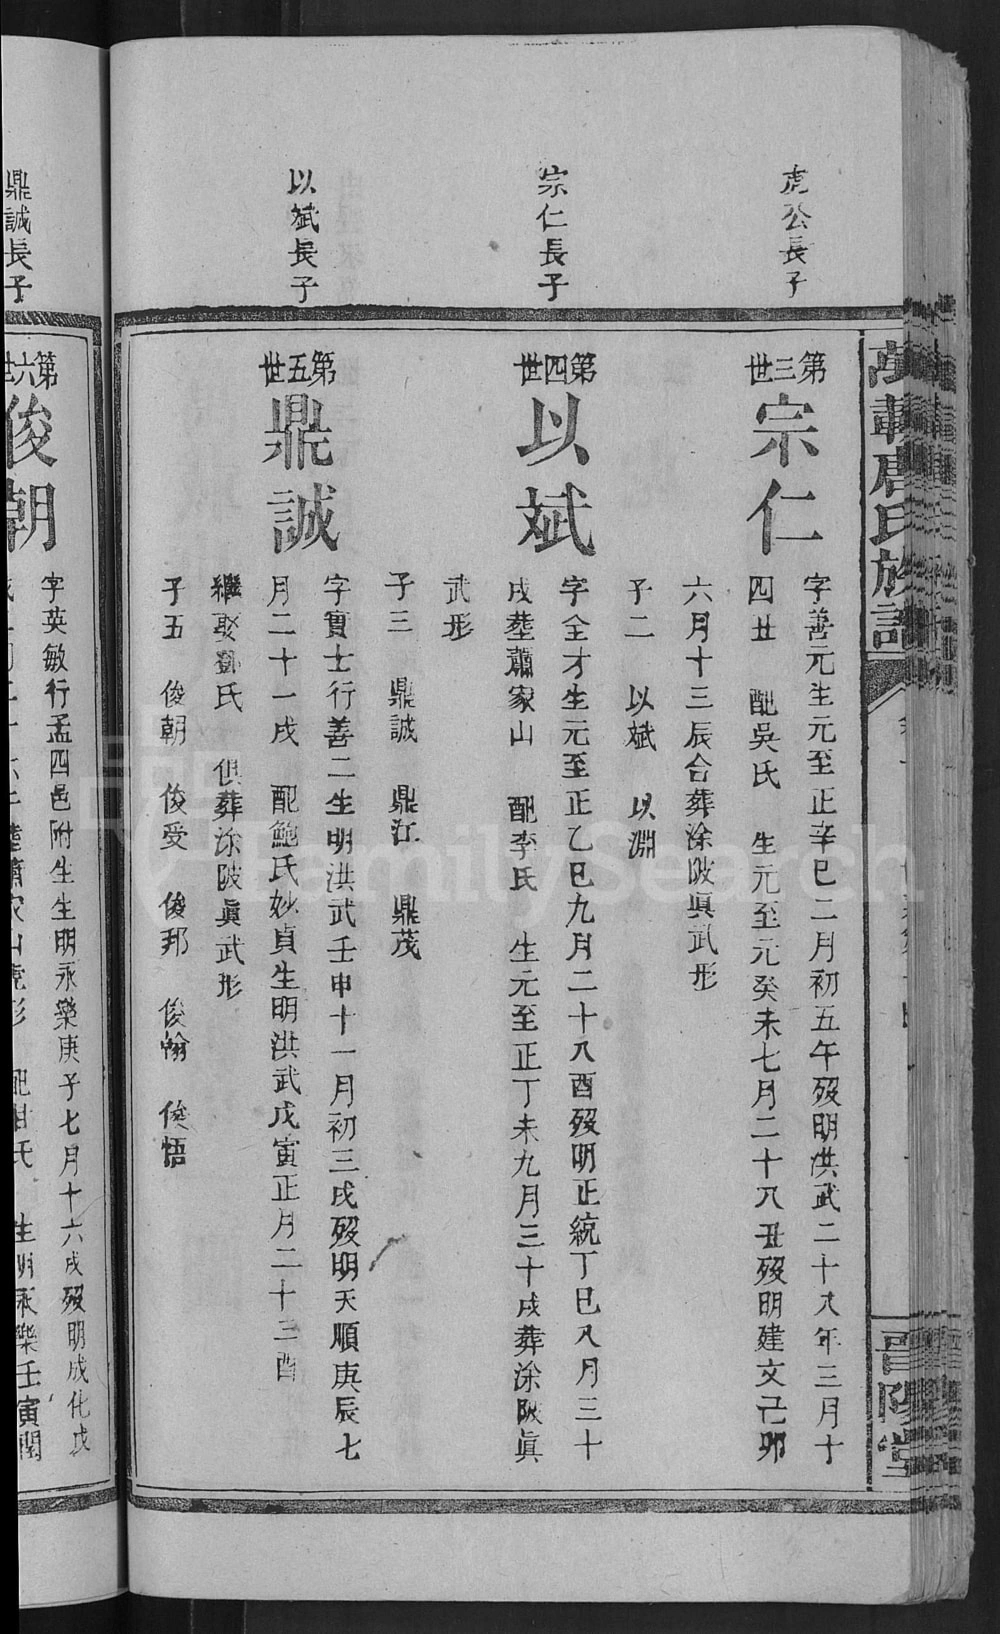 萬載唐氏族譜
晋陽堂
虎公長子
第三世
宗仁
字善元生元至正辛巳二月初五午歿明洪武二十八年三月十
四丑 配吳氏 生元至元癸未七月二十八丑歿明建文己卯
六月十三辰合葬涂陂眞武形
子二 以斌 以淵
宗仁長子
第四世
以斌
字全才生元至正乙巳九月二十八酉歿明正統丁巳八月三十
戌塟蕭家山 配李氏 生元至正丁未九月三十戌葬涂陂眞
武形
子三 鼎誠 鼎江 鼎茂
以斌長子
第五世
鼎誠
字實士行善二生明洪武壬申十一月初三戌歿明天順庚辰七
月二十一戌 配鮑氏妙貞生明洪武戊寅正月二十三酉
繼娶鄧氏 俱葬涂陂眞武形
子五 俊朝 俊受 俊邦 俊翰 俊悟
鼎誠長子
第六世
俊朝
字英敏行孟四邑附生生明永樂庚子七月十六戌歿明成化戊
配甘氏 生明永樂壬寅閏
FamilySearch